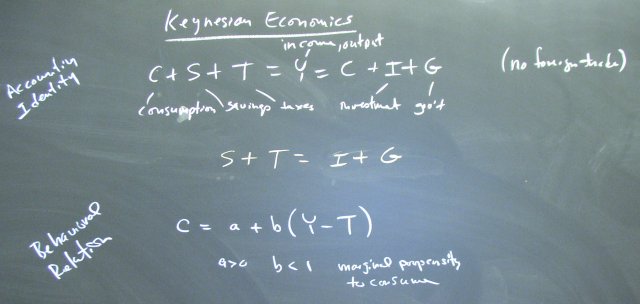 Keynesian Economics
income, output
Accounting Identity
C + S + T = Y = C + I + G
(no foreign trade)
consumption savings taxes investment gov't
S + T = I + G
Behavioral Relation
C = a + b(Y - T)
a>0 b<1 marginal propensity
to consume